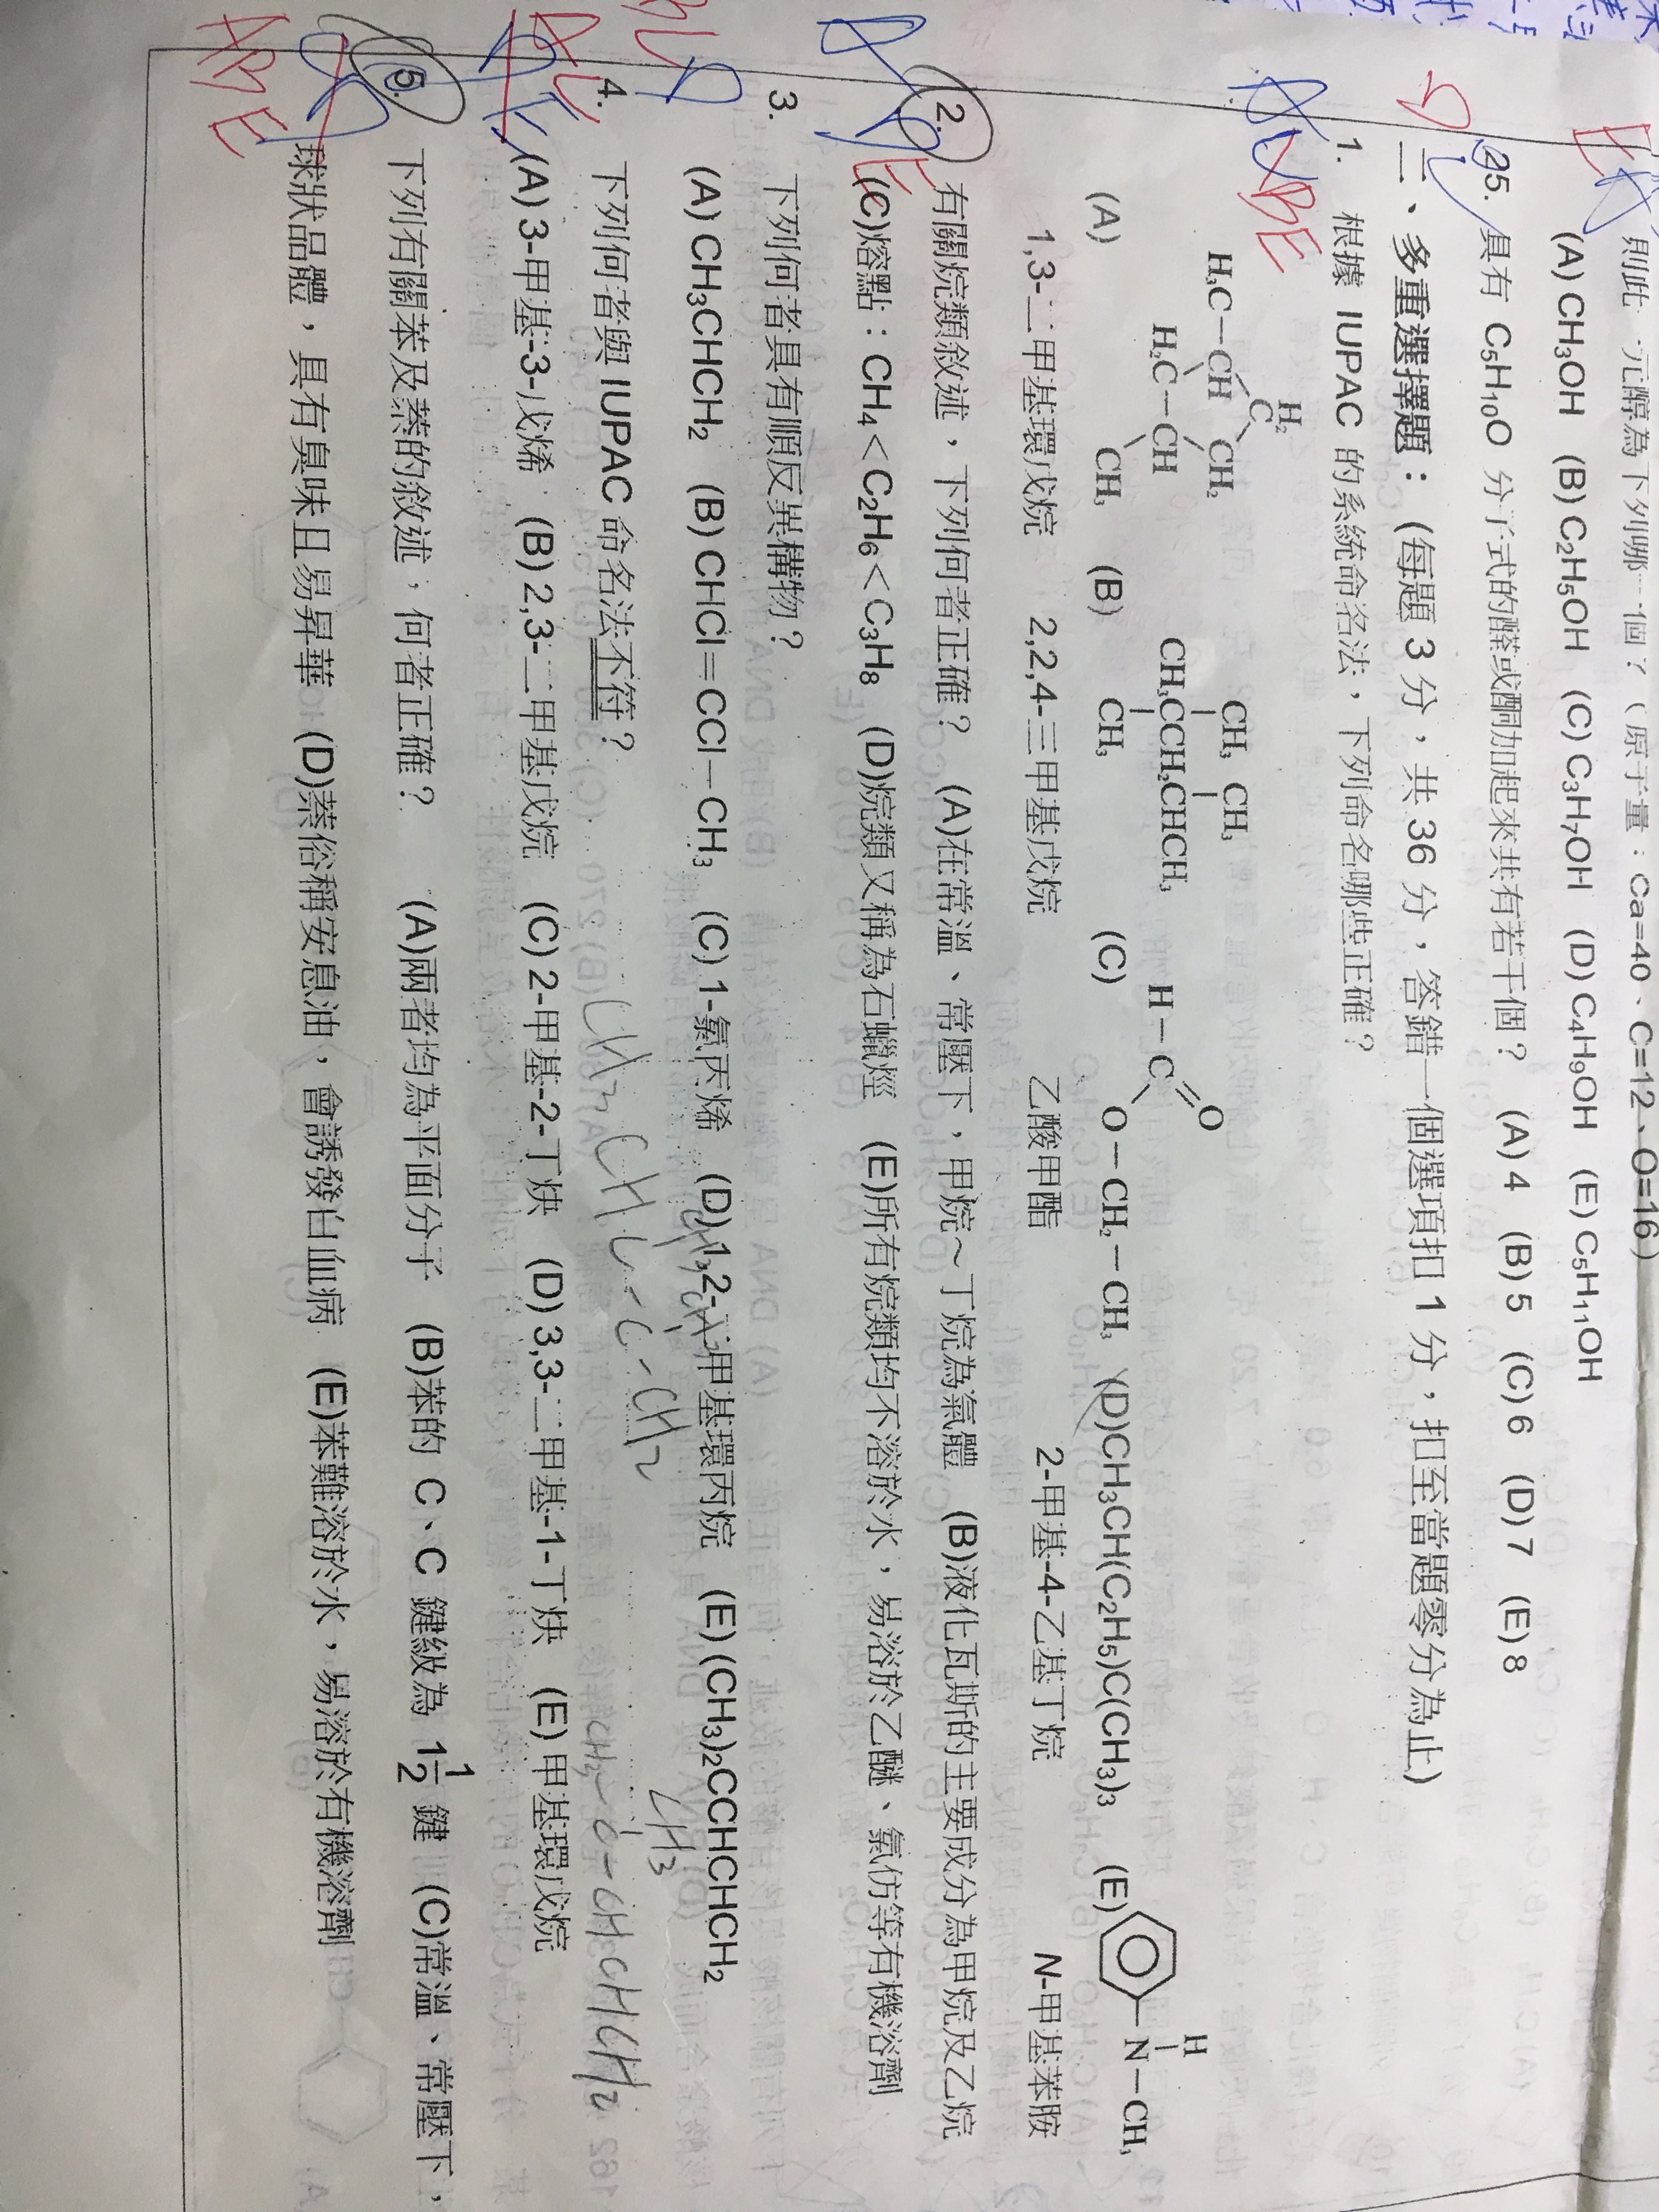 則此一元醇為下列哪一個？（原子量：Ca=40、C=12、O=16）
(A) CH₃OH (B) C₂H₅OH (C) C₃H₇OH (D) C₄H₉OH (E) C₅H₁₁OH
D
25. 具有 C₅H₁₀O 分子式的醛或酮加起來共有若干個？ (A) 4 (B) 5 (C) 6 (D) 7 (E) 8
二、多重選擇題：(每題 3 分，共 36 分，答錯一個選項扣 1 分，扣至當題零分為止)
ABE
1. 根據 IUPAC 的系統命名法，下列命名哪些正確？
H₂
C
H₃C－CH CH₂
H₂C－CH
(A) CH₃
1,3-二甲基環戊烷
CH₃ CH₃
CH₃CCH₂CHCH₃
(B) CH₃
2,2,4-三甲基戊烷
O
H－C
(C) O－CH₂－CH₃
乙酸甲酯
(D)CH₃CH(C₂H₅)C(CH₃)₃
2-甲基-4-乙基丁烷
H
(E) N－CH₃
N-甲基苯胺
2. 有關烷類敘述，下列何者正確？ (A)在常溫、常壓下，甲烷～丁烷為氣體 (B)液化瓦斯的主要成分為甲烷及乙烷
(C)熔點：CH₄＜C₂H₆＜C₃H₈ (D)烷類又稱為石蠟烴 (E)所有烷類均不溶於水，易溶於乙醚、氯仿等有機溶劑
3. 下列何者具有順反異構物？
(A) CH₃CHCH₂ (B) CHCl＝CCl－CH₃ (C) 1-氯丙烯 (D)1,2-二甲基環丙烷 (E) (CH₃)₂CCHCHCH₂
CH₃
4. 下列何者與 IUPAC 命名法不符？
(A) 3-甲基-3-戊烯 (B) 2,3-二甲基戊烷 (C) 2-甲基-2-丁炔 (D) 3,3-二甲基-1-丁炔 (E) 甲基環戊烷
5. 下列有關苯及萘的敘述，何者正確？ (A)兩者均為平面分子 (B)苯的 C、C 鍵級為 1½ 鍵 (C)常溫、常壓下，
ABE
球狀晶體，具有臭味且易昇華 (D)萘俗稱安息油，會誘發白血病 (E)苯難溶於水，易溶於有機溶劑